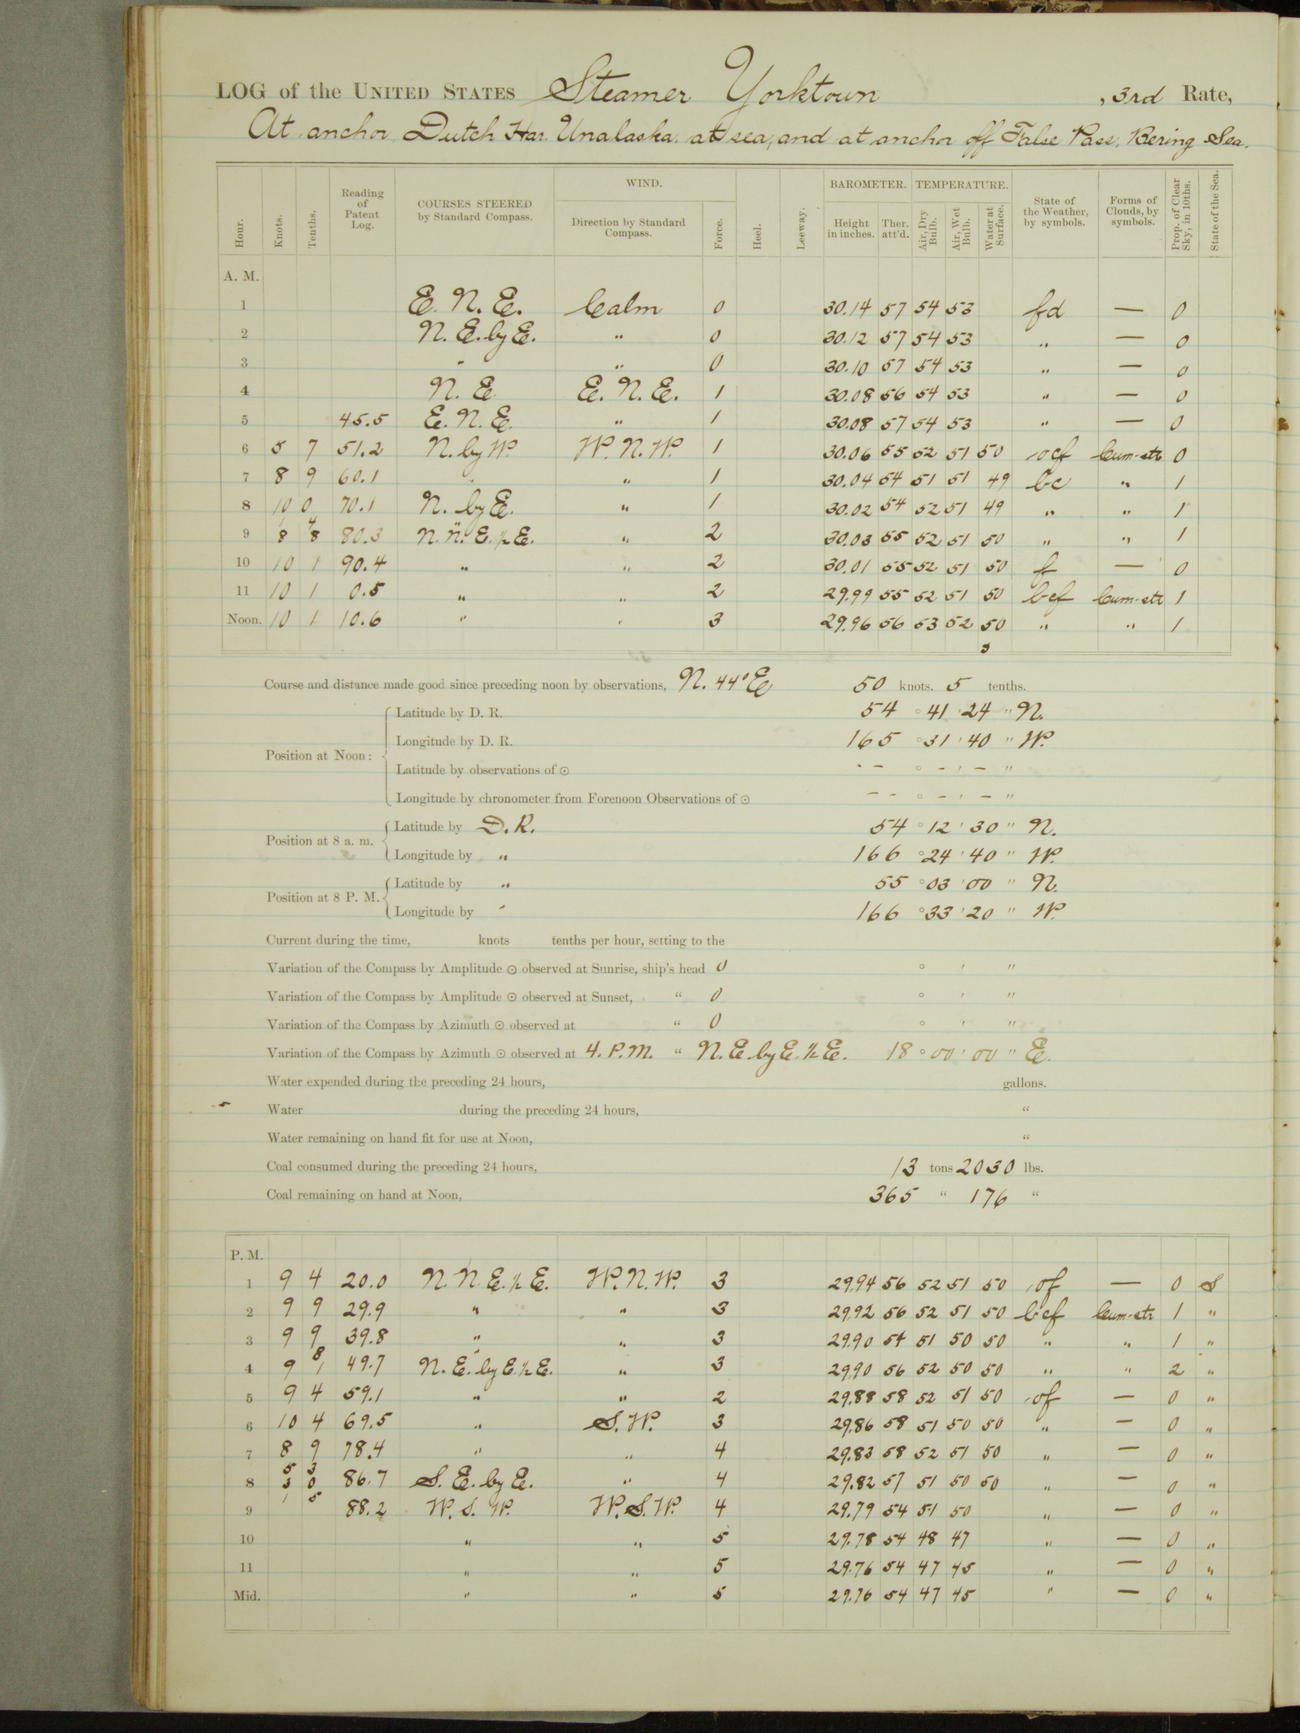 LOG of the UNITED STATES Steamer Yorktown , 3rd Rate,
At anchor Dutch Har. Unalaska. at sea, and at anchor off False Pass, Bering Sea.
Hour. Knots. Tenths. Reading of Patent Log. COURSES STEERED by Standard Compass. WIND. Direction by Standard Compass. Force. Heel. Leeway. BAROMETER. Height in inches. Ther. att'd. TEMPERATURE. Air, Dry Bulb. Air, Wet Bulb. Water at Surface. State of the Weather, by symbols. Forms of Clouds, by symbols. Prop. of Clear Sky, in 10ths. State of the Sea.
A. M.
1 E. N. E. Calm 0 30.14 57 54 53 fd — 0
2 N. E. by E. " 0 30.12 57 54 53 " — 0
3 " " 0 30.10 57 54 53 " — 0
4 N. E. E. N. E. 1 30.08 56 54 53 " — 0
5 45.5 E. N. E. " 1 30.08 57 54 53 " — 0
6 5 7 51.2 N. by W. W. N. W. 1 30.06 55 52 51 50 ocf Cum-str 0
7 8 9 60.1 " " 1 30.04 54 51 51 49 bc " 1
8 10 0 70.1 N. by E. " 1 30.02 54 52 51 49 " " 1
9 8 8 80.3 N. N. E. ½ E. " 2 30.03 55 52 51 50 " " 1
10 10 1 90.4 " " 2 30.01 55 52 51 50 f — 0
11 10 1 0.5 " " 2 29.99 55 52 51 50 bcf Cum-str 1
Noon. 10 1 10.6 " " 3 29.96 56 53 52 50 " " 1
Course and distance made good since preceding noon by observations, N. 44° E 50 knots. 5 tenths.
Position at Noon: Latitude by D. R. 54 ° 41 ' 24 " N.
Longitude by D. R. 165 ° 31 ' 40 " W.
Latitude by observations of ☉ - - ° - ' - "
Longitude by chronometer from Forenoon Observations of ☉ - - ° - ' - "
Position at 8 a. m. Latitude by D. R. 54 ° 12 ' 30 " N.
Longitude by " 166 ° 24 ' 40 " W.
Position at 8 P. M. Latitude by " 55 ° 03 ' 00 " N.
Longitude by " 166 ° 33 ' 20 " W.
Current during the time, knots tenths per hour, setting to the
Variation of the Compass by Amplitude ☉ observed at Sunrise, ship's head 0 ° ' "
Variation of the Compass by Amplitude ☉ observed at Sunset, " 0 ° ' "
Variation of the Compass by Azimuth ☉ observed at " 0 ° ' "
Variation of the Compass by Azimuth ☉ observed at 4. P.M. " N. E. by E. ½ E. 18 ° 00 ' 00 " E.
Water expended during the preceding 24 hours, gallons.
Water during the preceding 24 hours, "
Water remaining on hand fit for use at Noon, "
Coal consumed during the preceding 24 hours, 13 tons 2030 lbs.
Coal remaining on hand at Noon, 365 " 176 "
P. M.
1 9 4 20.0 N. N. E. ½ E. W. N. W. 3 29.94 56 52 51 50 of — 0 S
2 9 9 29.9 " " 3 29.92 56 52 51 50 bcf Cum-str 1 "
3 9 9 39.8 " " 3 29.90 54 51 50 50 " " 1 "
4 9 8 49.7 N. E. by E. ½ E. " 3 29.90 56 52 50 50 " " 2 "
5 9 4 59.1 " " 2 29.88 58 52 51 50 of — 0 "
6 10 4 69.5 " S. W. 3 29.86 58 51 50 50 " — 0 "
7 8 9 78.4 " " 4 29.83 58 52 51 50 " — 0 "
8 5 3 3 0 86.7 S. E. by E. " 4 29.82 57 51 50 50 " — 0 "
9 1 5 88.2 W. S. W. W. S. W. 4 29.79 54 51 50 " — 0 "
10 " " 5 29.78 54 48 47 " — 0 "
11 " " 5 29.76 54 47 45 " — 0 "
Mid. " " 5 29.76 54 47 45 " — 0 "